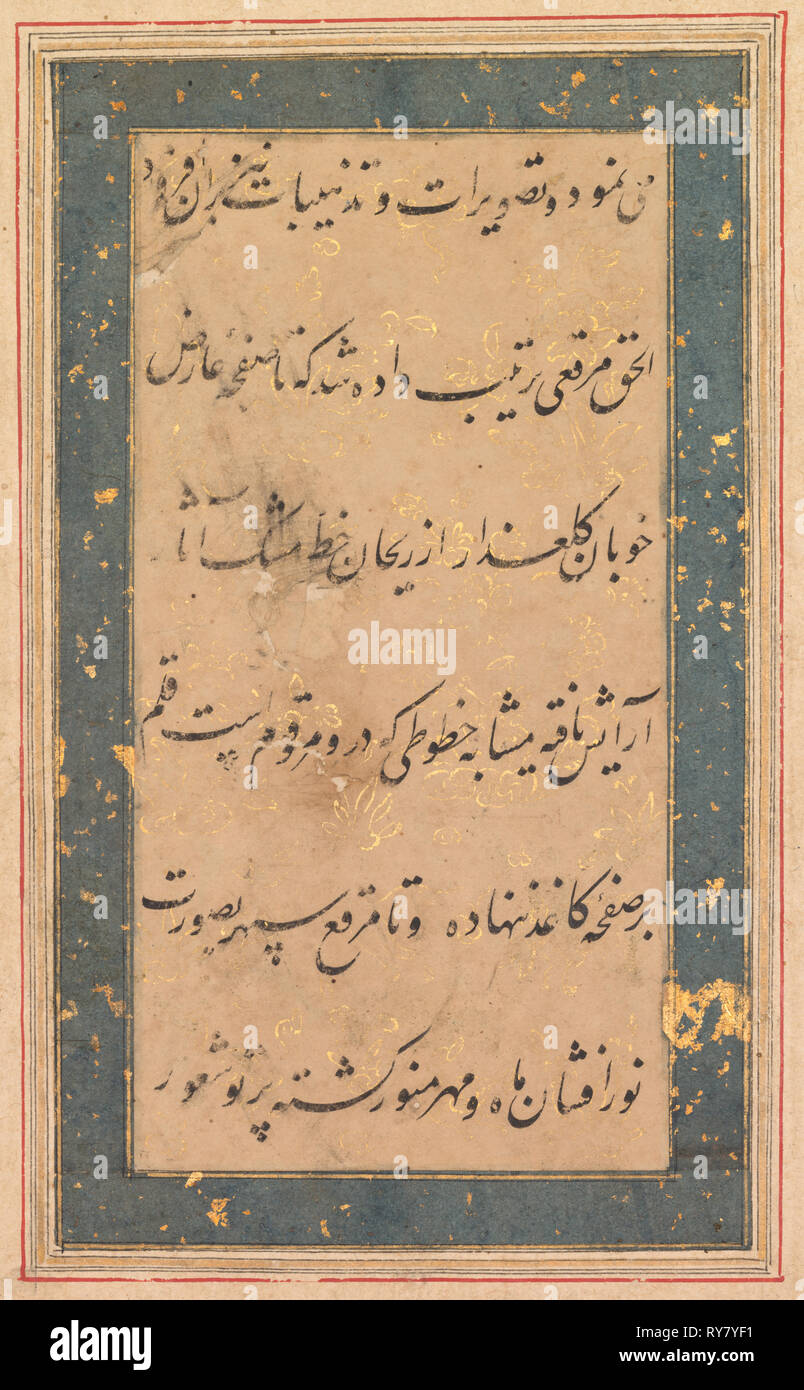 می نمود و تصویرات و تذهیبات نیز بران افزود
الحق مرقعی ترتیب داده شد که تا صفحهٔ عارض
خوبان گلعذار از ریحان خط مشک آسا
آرایش یافته مشابه خطوطی که درو مرقوم است قلم
بر صفحهٔ کاغذ نهاده و تا مرقع سپهر بصورت
نور افشان ماه و مهر منور کشته پرتو شعور
alamy
a
alamy
Image ID: RY7YF1
www.alamy.com